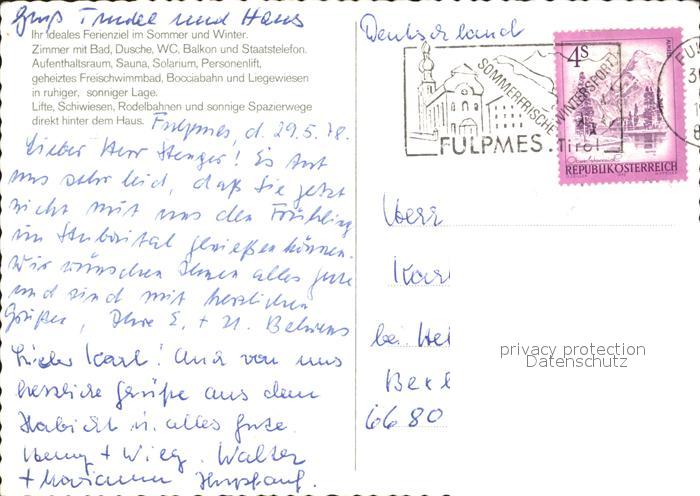 Gruß Trudel und Hans
Ihr ideales Ferienziel im Sommer und Winter.
Zimmer mit Bad, Dusche, WC, Balkon und Staatstelefon.
Aufenthaltsraum, Sauna, Solarium, Personenlift,
geheiztes Freischwimmbad, Bocciabahn und Liegewiesen
in ruhiger, sonniger Lage.
Lifte, Schiwiesen, Rodelbahnen und sonnige Spazierwege
direkt hinter dem Haus.
Fulpmes, d. 29.5.78.
Lieber Herr Stenger! Es tut
uns sehr leid, daß Sie jetzt
nicht mit uns den Frühling
im Stubaital genießen können.
Wir wünschen Ihnen alles gute
und sind mit herzlichen
Grüßen, Ihre E. + H. Behrens
Lieber Karl! Auch von uns
herzliche Grüße aus dem
Habicht u. alles Gute.
+ Wieg. Walter
+ Marianne
Deutschland
SOMMERFRISCHE WINTERSPORT
FULPMES. Tirol
4S
REPUBLIK ÖSTERREICH
FU
Herr
Karl
bei Hei
Bexb
6680
privacy protection
Datenschutz